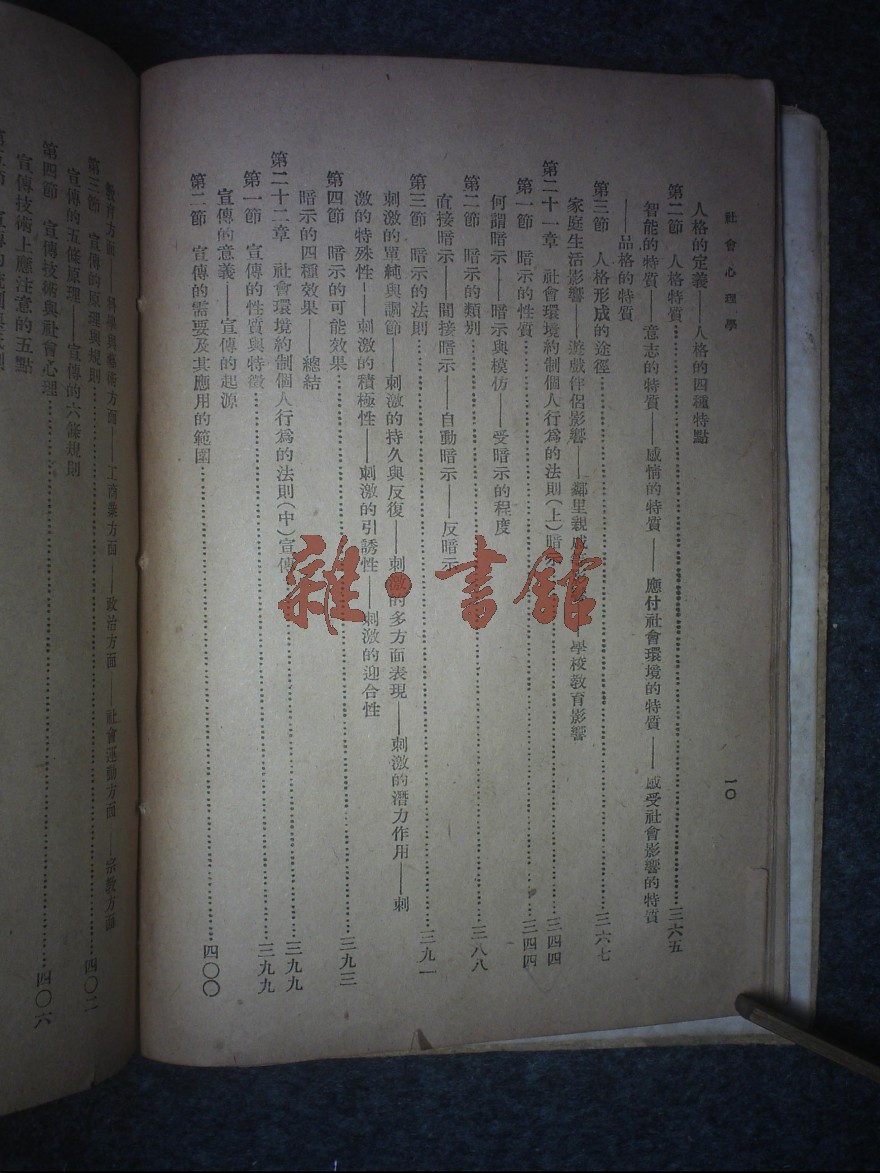 社會心理學
一〇
人格的定義——人格的四種特點
第二節 人格特質……三六五
智能的特質——意志的特質——感情的特質——應付社會環境的特質——感受社會影響的特質
——品格的特質
第三節 人格形成的途徑……三六七
家庭生活影響——遊戲伴侶影響——鄰里親戚 學校教育影響
第二十一章 社會環境約制個人行為的法則(上)暗示……三四四
第一節 暗示的性質……三四四
何謂暗示——暗示與模仿——受暗示的程度
第二節 暗示的類別……三八八
直接暗示——間接暗示——自動暗示——反暗示
第三節 暗示的法則……三九一
刺激的單純與調節——刺激的持久與反復——刺激的多方面表現——刺激的潛力作用——刺
激的特殊性——刺激的積極性——刺激的引誘性——刺激的迎合性
第四節 暗示的可能效果……三九三
暗示的四種效果——總結
第二十二章 社會環境約制個人行為的法則(中)宣傳……三九九
第一節 宣傳的性質與特徵……三九九
宣傳的意義——宣傳的起源
第二節 宣傳的需要及其應用的範圍……四〇〇
教育方面——科學與藝術方面——工商業方面——政治方面——社會運動方面——宗教方面
第三節 宣傳的原理與規則……四〇二
宣傳的五條原理——宣傳的六條規則
第四節 宣傳技術與社會心理……四〇六
宣傳技術上應注意的五點
第五節
雜·書館